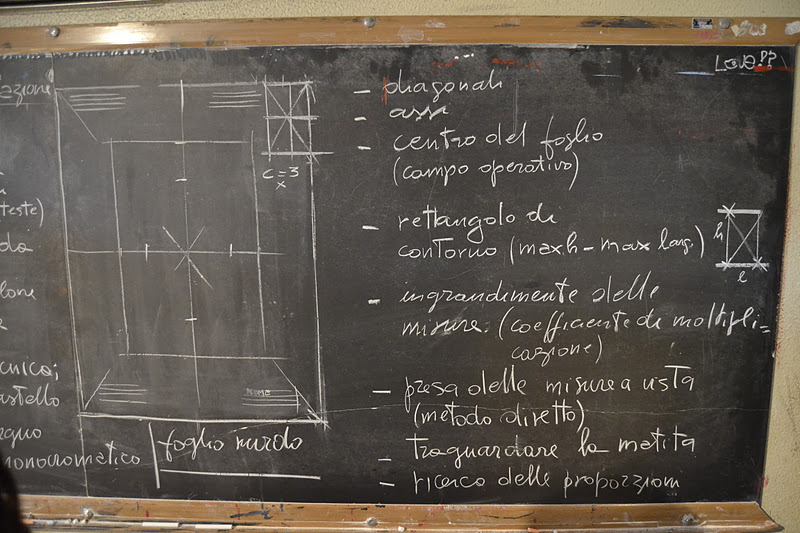 azione
teste)
lone
cnica;
astello
monocromatico
C=3
x
NOME
foglio ruvdo
Love!??
- diagonali
- assi
- centro del foglio
(campo operativo)
- rettangolo di
contorno (max h - max larg.)
h
l
- ingrandimente delle
misure. (coefficente di moltipli-
cazione)
- presa delle misure a vista
(metodo diretto)
- traguardare la matita
- ricerca delle proporzioni